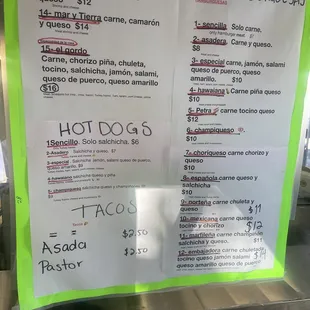 $12
14- mar y Tierra carne, camarón
y queso $14
15- el gordo
Carne, chorizo piña, chuleta,
tocino, salchicha, jamón, salami
queso de puerco, queso amarillo
$16
HOT DOGS
1Sencillo. Solo salchicha. $6
2- Asadero. Salchicha y queso. $7
3- especial Salchicha, jamón, salami, queso de puerco,
queso amarillo.
4- Hawaiano Salchicha queso y piña
6- champiqueso
TACOS
= =
Asada $2.50
Pastor $2.50
1- sencilla Solo carne.
only hamburger meat
2- asadera. Carne y queso.
$8
3- especial carne, jamón,
salami, queso de puerco, queso
amarillo. $10
4- hawaiana Carne piña queso
$10
5- Petra carne tocino queso
$12
6- champiqueso
$10
7- choriqueso carne chorizo y
queso
$10
8- española carne queso y
salchicha
$10
9- norteña carne chuleta y
queso $11
10- mexicana carne queso
tocino y chorizo $12
11- marfileña carne champiñon
salchicha y queso. $11
12- embajadora carne chuleta
tocino queso jamón salami
queso amarillo queso de $14